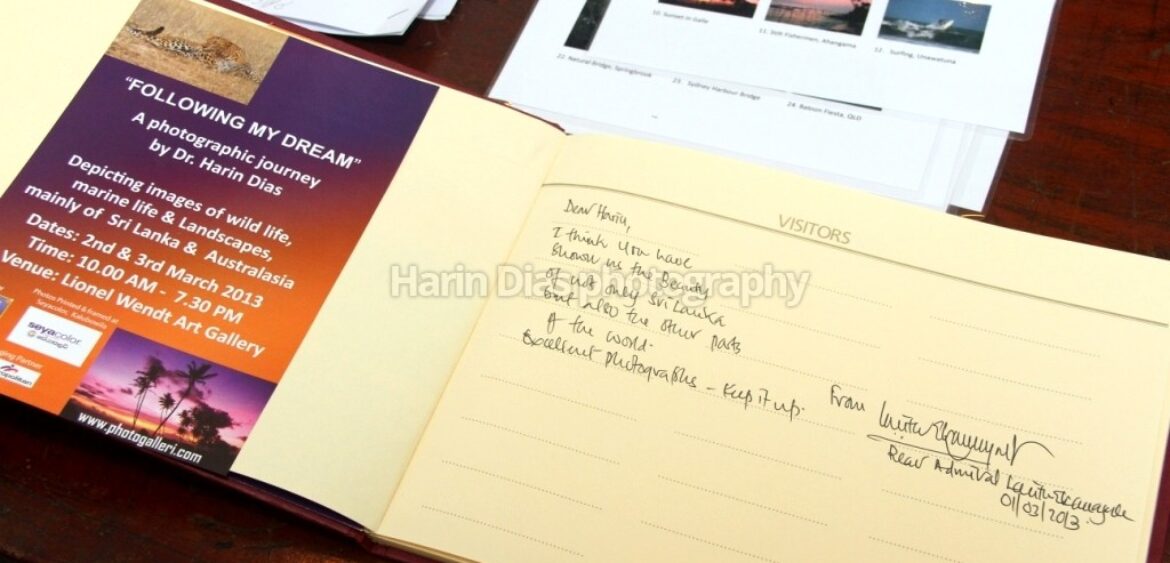 “FOLLOWING MY DREAM”
A photographic journey
by Dr. Harin Dias
Depicting images of wild life,
marine life & Landscapes,
mainly of Sri Lanka & Australasia
Dates: 2nd & 3rd March 2013
Time: 10.00 AM - 7.30 PM
Venue: Lionel Wendt Art Gallery
Photos Printed & framed at
Seyacolor, Kalubowila
seyacolor
ging Partner
ropolitan
www.photogalleri.com
10. Sunset in Galle
11. Stilt Fishermen, Ahangama
12. Surfing, Unawatuna
22. Natural Bridge, Springbrook
23. Sydney Harbour Bridge
24. Baloon Fiesta, QLD
VISITORS
Dear Harin,
I think you have
shown us the Beauty
of not only Sri Lanka
but also the other parts
of the world.
Excellent photographs – Keep it up.
From
Rear Admiral
01/03/2013
Harin Dias photography